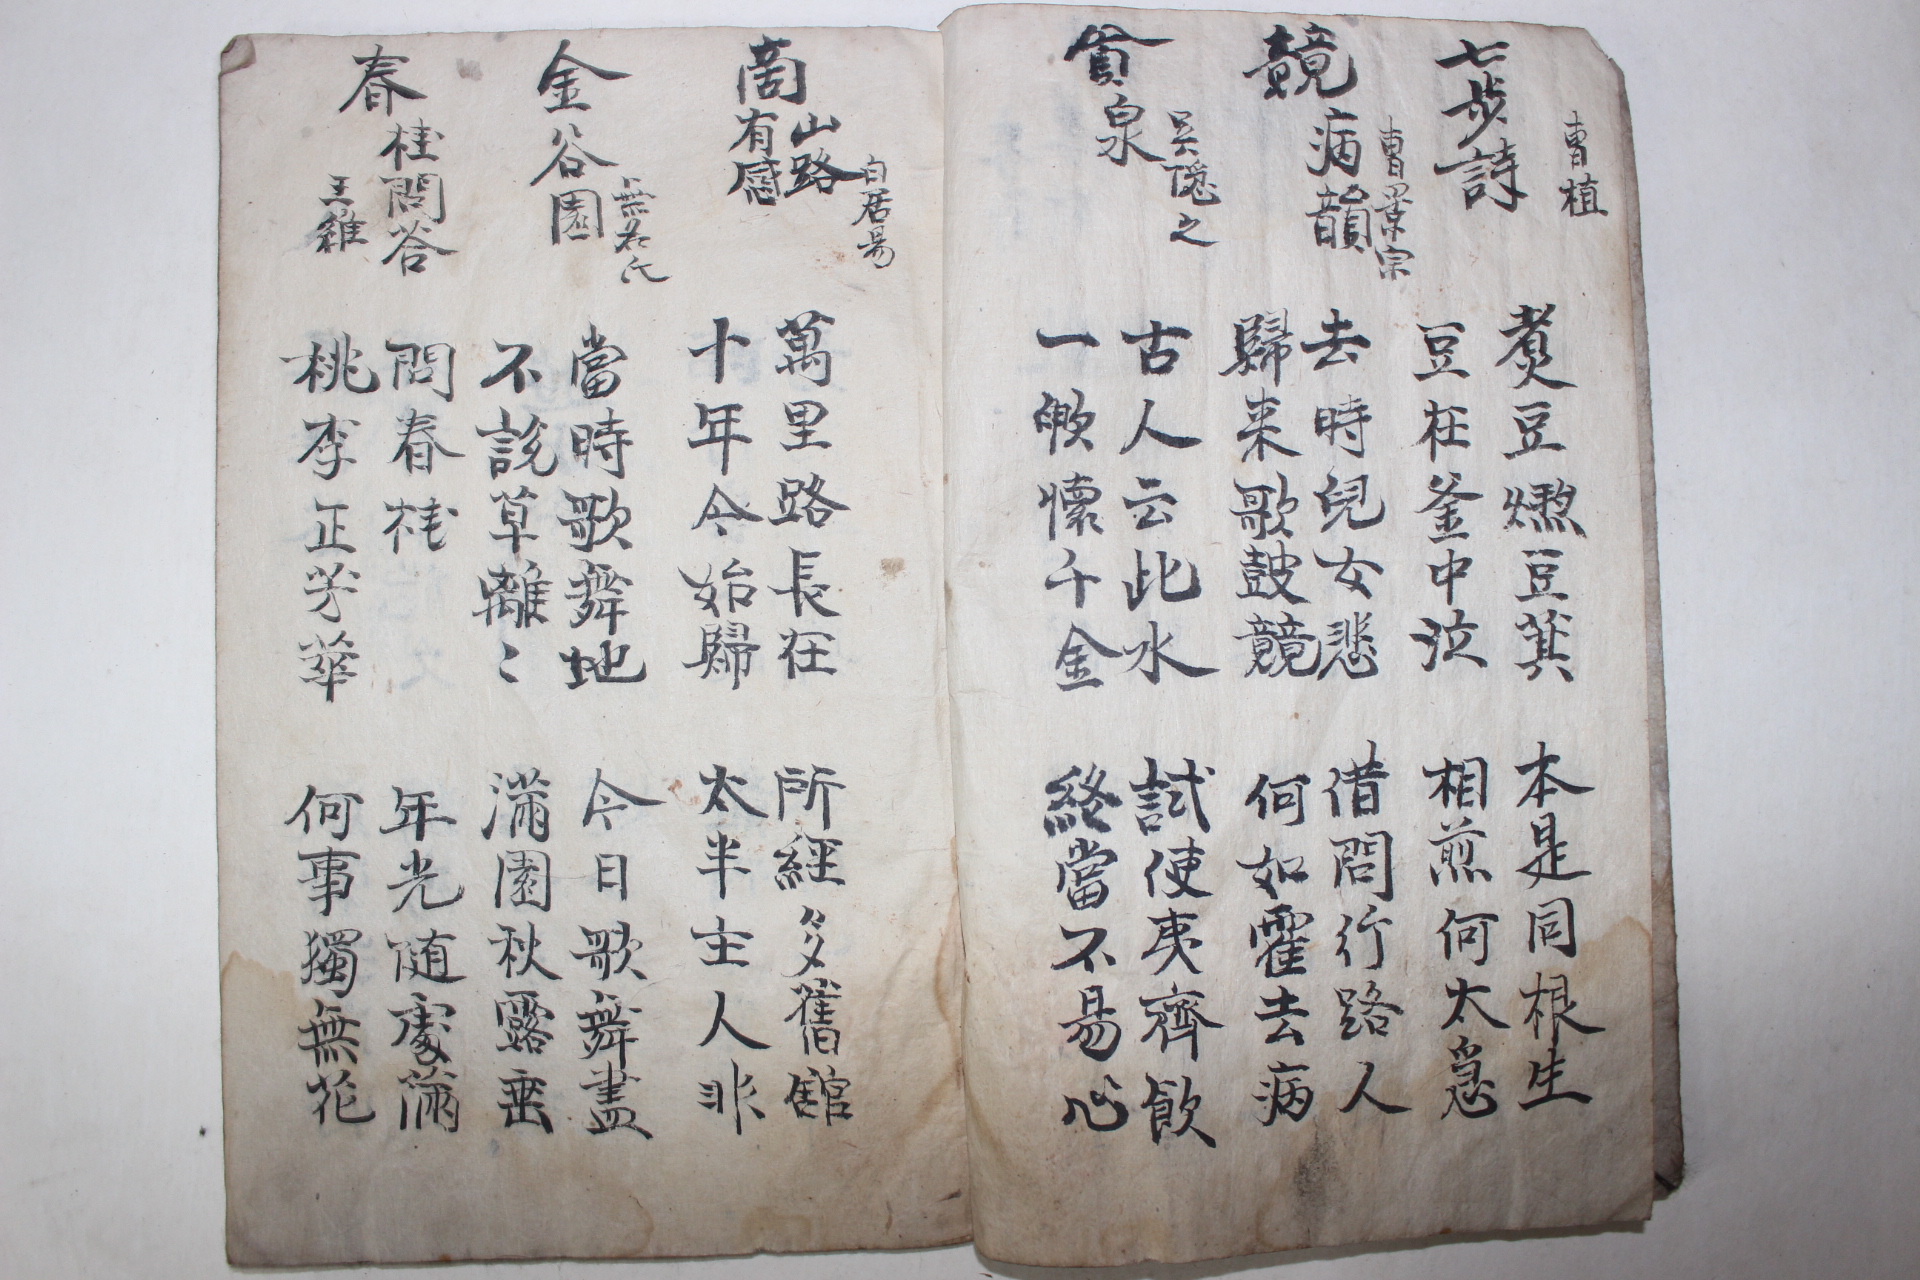 七步詩
曹植
煑豆燃豆萁
本是同根生
豆在釜中泣
相煎何太急
競病韻
曹景宗
去時兒女悲
借問行路人
歸來歌鼓競
何如霍去病
貪泉
吳隱之
古人云此水
試使夷齊飮
一歃懷千金
終當不易心
商山路有感
白居易
萬里路長在
所經多舊館
十年今始歸
太半主人非
金谷園
無名氏
當時歌舞地
今日歌舞盡
不說草離〻
滿園秋露垂
春桂問答
王維
問春桂
年光随處滿
桃李正芳華
何事獨無花